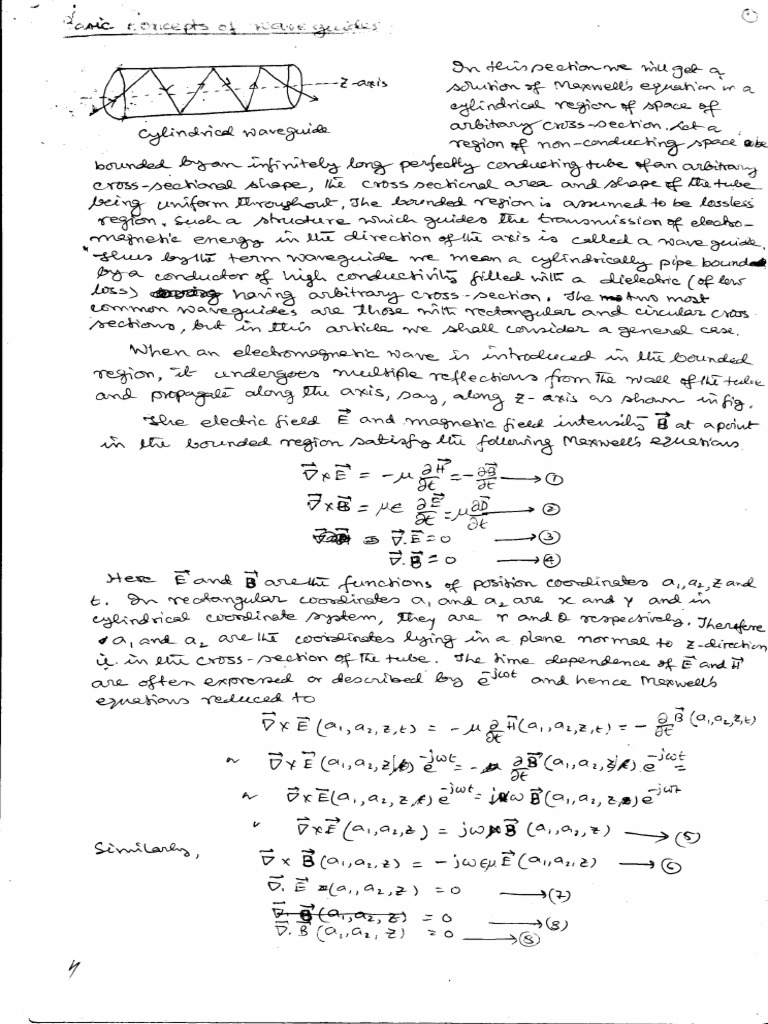 ①
Basic concepts of waveguides
z-axis
cylindrical waveguide
In this section we will get a
solution of Maxwell's equation in a
cylindrical region of space of
arbitrary cross-section. Let a
region of non-conducting space be
bounded by an infinitely long perfectly conducting tube of an arbitrary
cross-sectional shape, the cross sectional area and shape of the tube
being uniform throughout. The bounded region is assumed to be lossless
region. Such a structure which guides the transmission of electro-
magnetic energy in the direction of the axis is called a wave guide.
Thus by the term waveguide we mean a cylindrically pipe bounded
by a conductor of high conductivity filled with a dielectric (of low
loss) having arbitrary cross-section. The two most
common waveguides are those with rectangular and circular cross
sections, but in this article we shall consider a general case.
When an electromagnetic wave is introduced in the bounded
region, it undergoes multiple reflections from the wall of the tube
and propagate along the axis, say, along z-axis as shown in fig.
The electric field E⃗ and magnetic field intensity B⃗ at a point
in the bounded region satisfy the following Maxwell's equations
∇⃗ × E⃗ = -μ ∂H⃗/∂t = -∂B⃗/∂t → ①
∇⃗ × B⃗ = μϵ ∂E⃗/∂t = μ ∂D⃗/∂t → ②
∇⃗.E⃗ = 0 → ③
∇⃗.B⃗ = 0 → ④
Here E⃗ and B⃗ are the functions of position coordinates a₁, a₂, z and
t. In rectangular coordinates a₁ and a₂ are x and y and in
cylindrical coordinate system, they are r and θ respectively. Therefore
a₁ and a₂ are the coordinates lying in a plane normal to z-direction
ie. in the cross-section of the tube. The time dependence of E⃗ and H⃗
are often expressed or described by e^-jωt and hence Maxwell's
equations reduced to
∇⃗ × E⃗ (a₁, a₂, z, t) = -μ ∂/∂t H⃗(a₁, a₂, z, t) = -∂/∂t B⃗(a₁, a₂, z, t)
∇⃗ × E⃗ (a₁, a₂, z) e^-jωt = - ∂/∂t B⃗ (a₁, a₂, z) e^-jωt =
∇⃗ × E⃗(a₁, a₂, z) e^-jωt = jω B⃗(a₁, a₂, z) e^-jωt
∇⃗ × E⃗ (a₁, a₂, z) = jω B⃗ (a₁, a₂, z) → (5)
Similarly,
∇⃗ × B⃗ (a₁, a₂, z) = -jωϵμ E⃗ (a₁, a₂, z) → ⑥
∇⃗. E⃗ (a₁, a₂, z) = 0 → (7)
∇⃗. B⃗ (a₁, a₂, z) = 0 → (8)
∇⃗. B⃗ (a₁, a₂, z) = 0 → ⑧